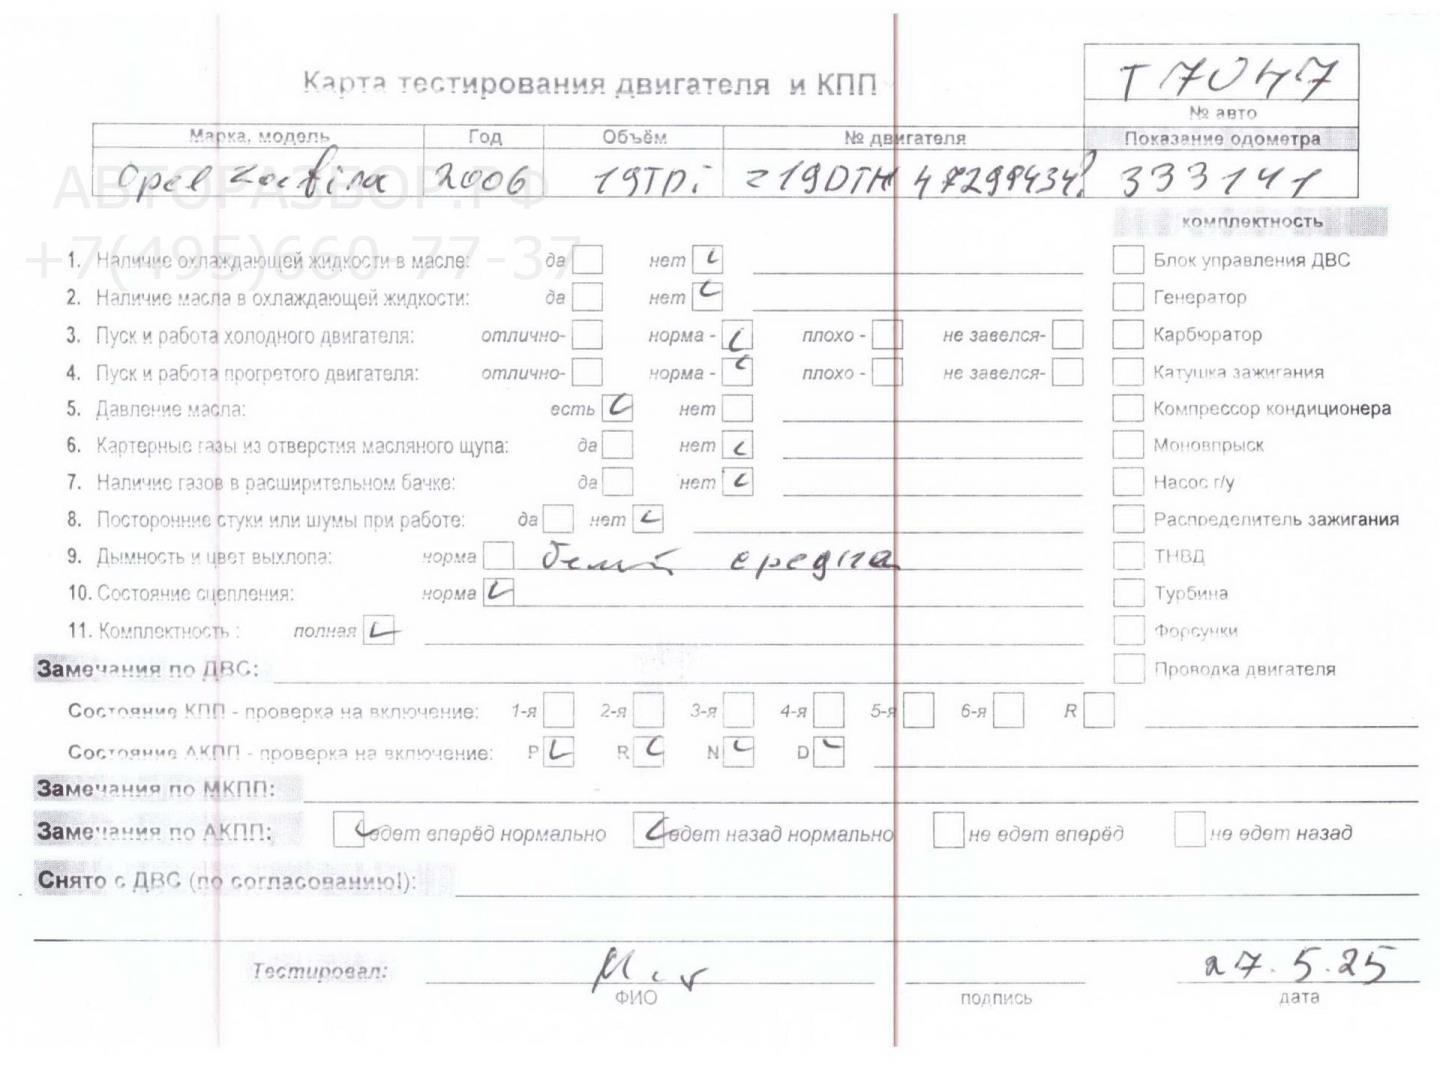 Карта тестирования двигателя и КПП
Т7047
№ авто
Марка, модель Год Объём № двигателя Показание одометра
Opel Zafira 2006 19TDi z19DTH 333141
АВТОРАЗБОР.РФ
+7(495)660-77-37
комплектность
1. Наличие охлаждающей жидкости в масле: да нет Блок управления ДВС
2. Наличие масла в охлаждающей жидкости: да нет Генератор
3. Пуск и работа холодного двигателя: отлично- норма - плохо - не завелся- Карбюратор
4. Пуск и работа прогретого двигателя: отлично- норма - плохо - не завелся- Катушка зажигания
5. Давление масла: есть нет Компрессор кондиционера
6. Картерные газы из отверстия масляного щупа: да нет Моновпрыск
7. Наличие газов в расширительном бачке: да нет Насос г/у
8. Посторонние стуки или шумы при работе: да нет Распределитель зажигания
9. Дымность и цвет выхлопа: норма белый средна ТНВД
10. Состояние сцепления: норма Турбина
11. Комплектность : полная Форсунки
Замечания по ДВС: Проводка двигателя
Состояние КПП - проверка на включение: 1-я 2-я 3-я 4-я 5-я 6-я R
Состояние АКПП - проверка на включение: P R N D
Замечания по МКПП:
Замечания по АКПП: едет вперёд нормально едет назад нормально не едет вперёд не едет назад
Снято с ДВС (по согласованию!):
Тестировал: 27.5.25
ФИО подпись дата